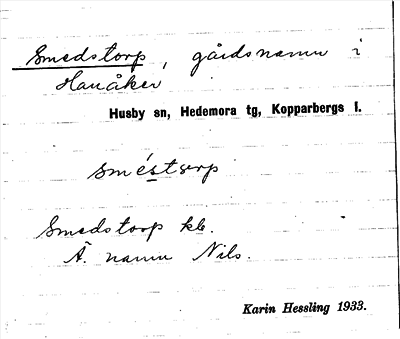 Smedstorp, gårdsnamn i
Hanåker
Husby sn, Hedemora tg, Kopparbergs l.
Smedstorp kb.
Ä. namn Nils.
Karin Hessling 1933.